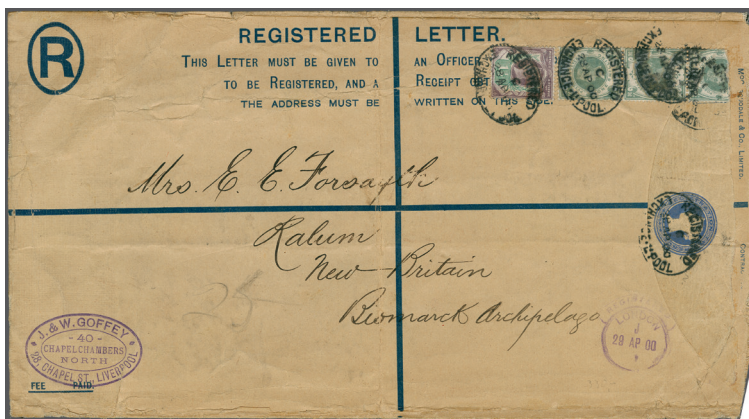 R
REGISTERED LETTER.
THIS LETTER MUST BE GIVEN TO AN OFFICER
TO BE REGISTERED, AND A RECEIPT
THE ADDRESS MUST BE WRITTEN ON THIS
REGISTERED
C
AP 00
EXCHANGE L'POOL
Mrs. E. E. Forsayth
Ralum
New-Britain
Bismarck Archipelago
25
REGISTERED
EXCHANGE L'POOL
LONDON
28 AP 00
J. & W. GOFFEY
- 40 -
CHAPEL CHAMBERS
NORTH
28, CHAPEL ST. LIVERPOOL
FEE PAID
& CO. LIMITED.